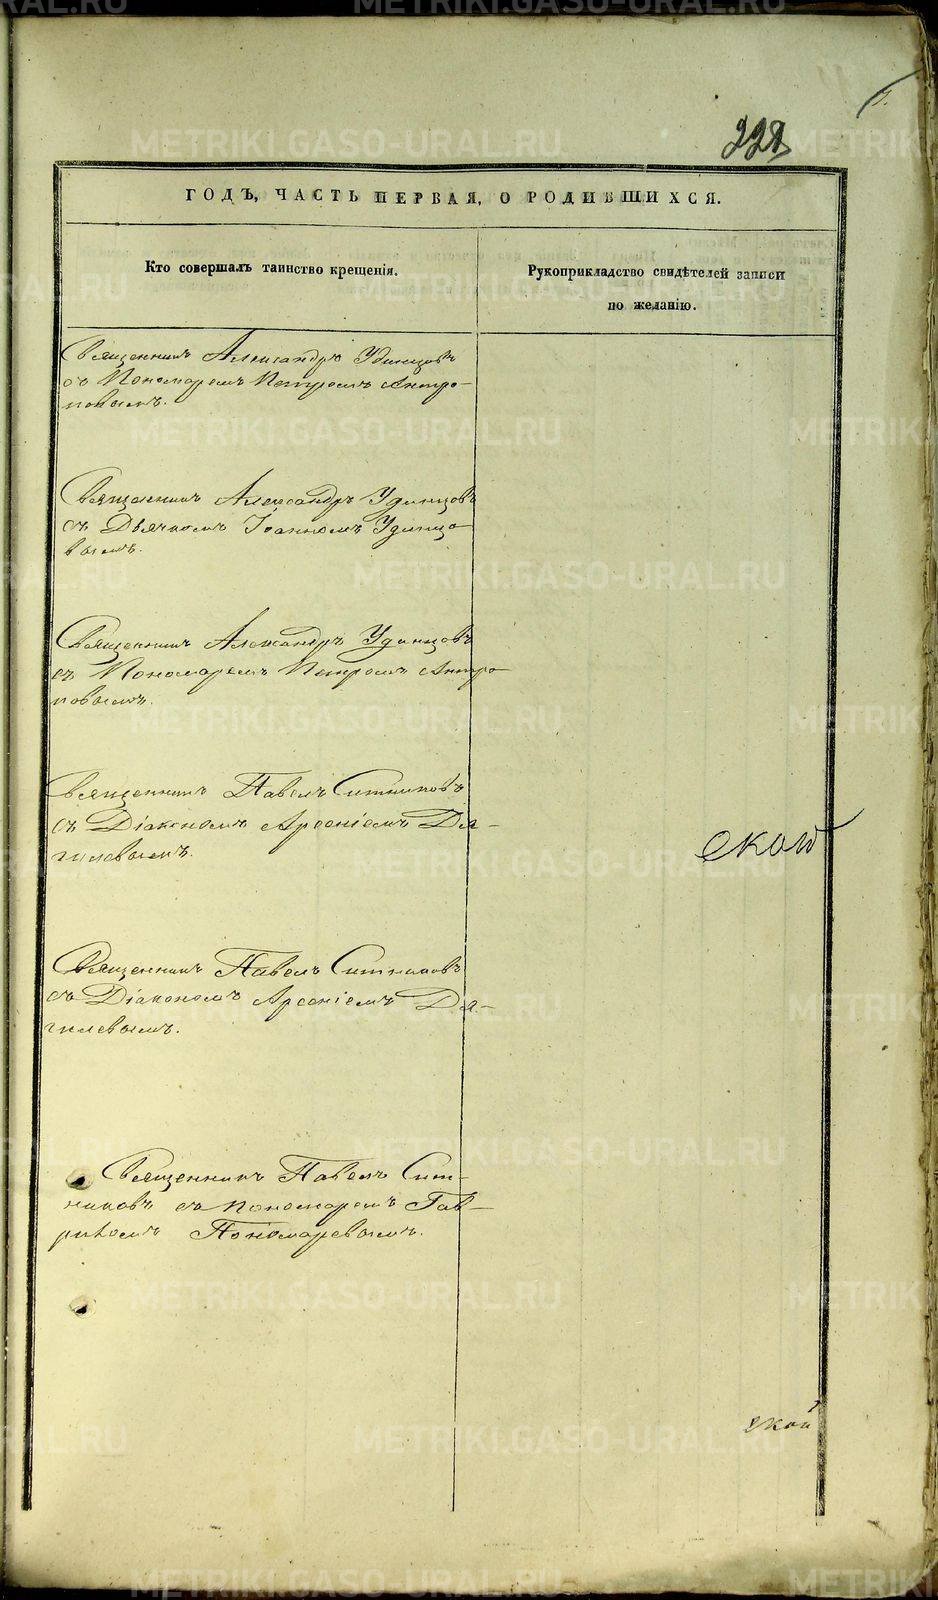 228
ГОДЪ, ЧАСТЬ ПЕРВАЯ, О РОДИВШИХСЯ.
Кто совершалъ таинство крещенія.
Рукоприкладство свидѣтелей записи
по желанію.
Священникъ Александръ Удинцовъ
съ Пономаремъ Петромъ Антро-
повымъ.
Священникъ Александръ Удинцовъ
съ Дьячкомъ Іоанномъ Удинцо
вымъ.
Священникъ Александръ Удинцовъ
съ Пономаремъ Петромъ Антро
повымъ.
Священникъ Павелъ Ситниковъ
съ Діакономъ Арсеніемъ Дя-
гилевымъ.
ской
Священникъ Павелъ Ситниковъ
съ Діакономъ Арсеніемъ Дя-
гилевымъ.
Священникъ Павелъ Сит-
никовъ съ пономаремъ Гав-
риломъ Пономаревымъ.
ской
METRIKI.GASO-URAL.RU